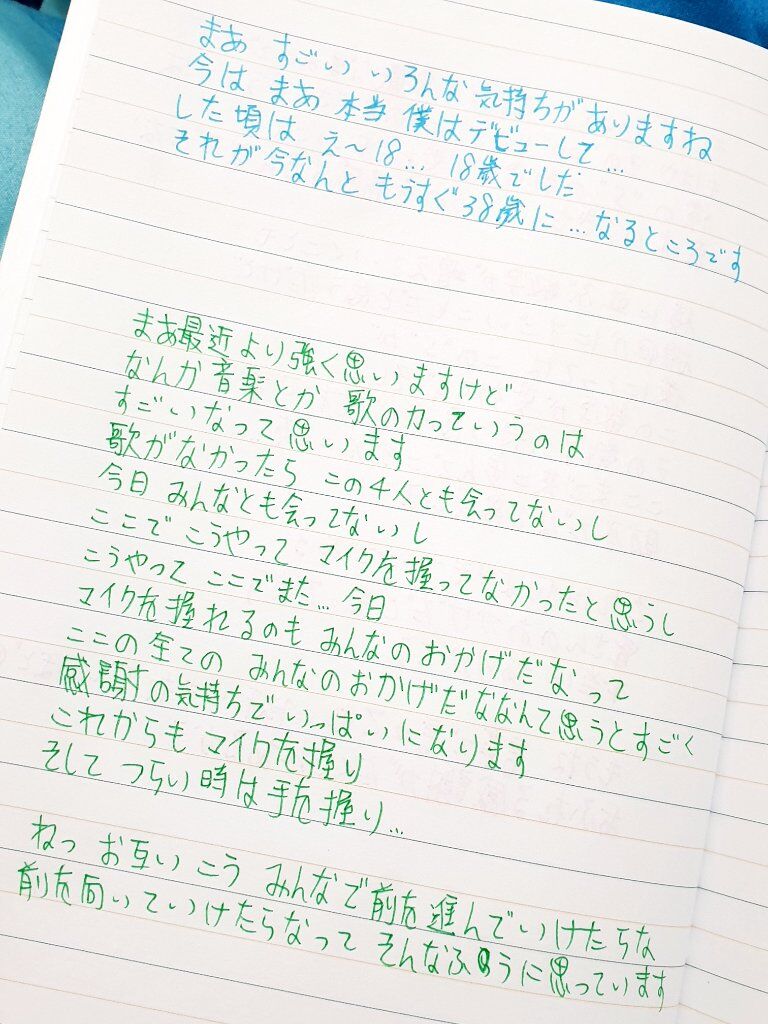 まあ すごい いろんな気持ちがありますね
今は まあ 本当 僕はデビューして…
した頃は え〜18… 18歳でした
それが今なんと もうすぐ38歳に…なるところです
まあ最近より強く思いますけど
なんか音楽とか 歌の力っていうのは
すごいなって思います
歌がなかったら この4人とも会ってないし
今日 みんなとも会ってないし
ここで こうやって マイクを握ってなかったと思うし
こうやって ここでまた… 今日
マイクを握れるのも みんなのおかげだなって
ここの全ての みんなのおかげだななんて思うとすごく
感謝の気持ちでいっぱいになります
これからも マイクを握り
そして つらい時は手を握り…
ねっ お互い こう みんなで前を進んでいけたらな
前を向いていけたらなって そんなふうに思っています